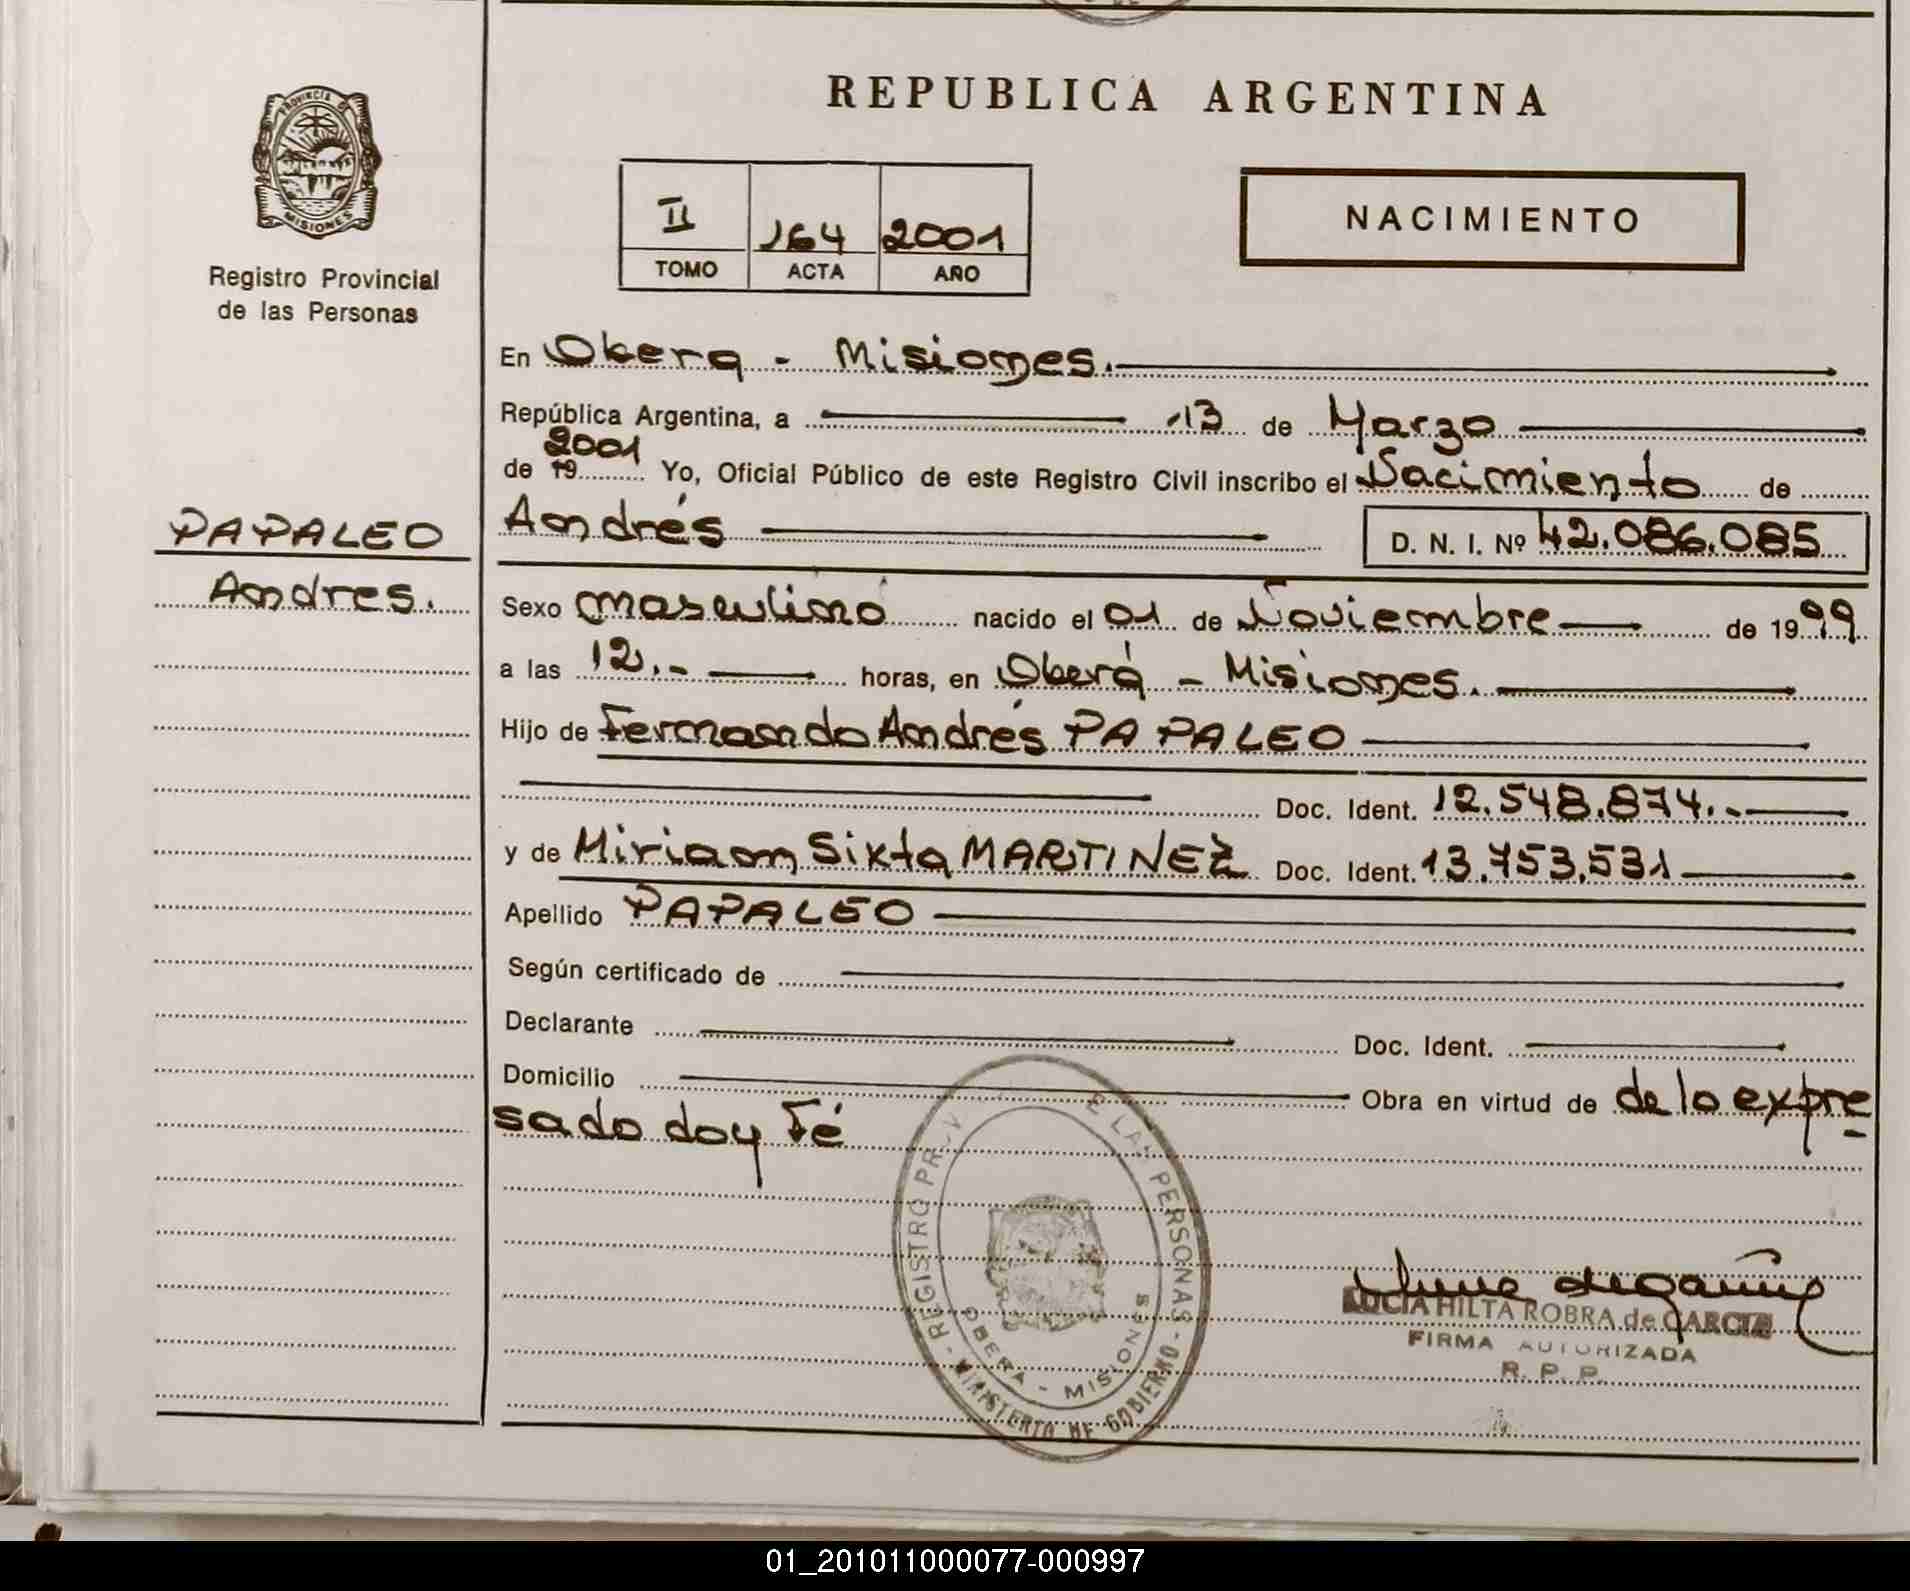 REPUBLICA ARGENTINA
PROVINCIA DE
MISIONES
Registro Provincial
de las Personas
II 164 2001
TOMO ACTA AÑO
NACIMIENTO
En Obera - Misiones.
República Argentina, a 13 de Marzo
2001
de 19 Yo, Oficial Público de este Registro Civil inscribo el Nacimiento de
PAPALEO
Andres.
Andrés D. N. I. Nº 42.086.085
Sexo masculino nacido el 01 de Noviembre de 1999
a las 12.- horas, en Oberá - Misiones.
Hijo de Fernando Andrés PAPALEO
Doc. Ident. 12.548.874.-
y de Miriam Sixta MARTINEZ Doc. Ident. 13.753.531
Apellido PAPALEO
Según certificado de
Declarante Doc. Ident.
Domicilio Obra en virtud de de lo expre
sado doy Fé
REGISTRO PROV E LAS PERSONAS - MINISTERIO DE GOBIERNO -
OBERA - MISIONES
LUCIA HILTA ROBRA de GARCIA
FIRMA AUTORIZADA
R. P. P.
01_201011000077-000997